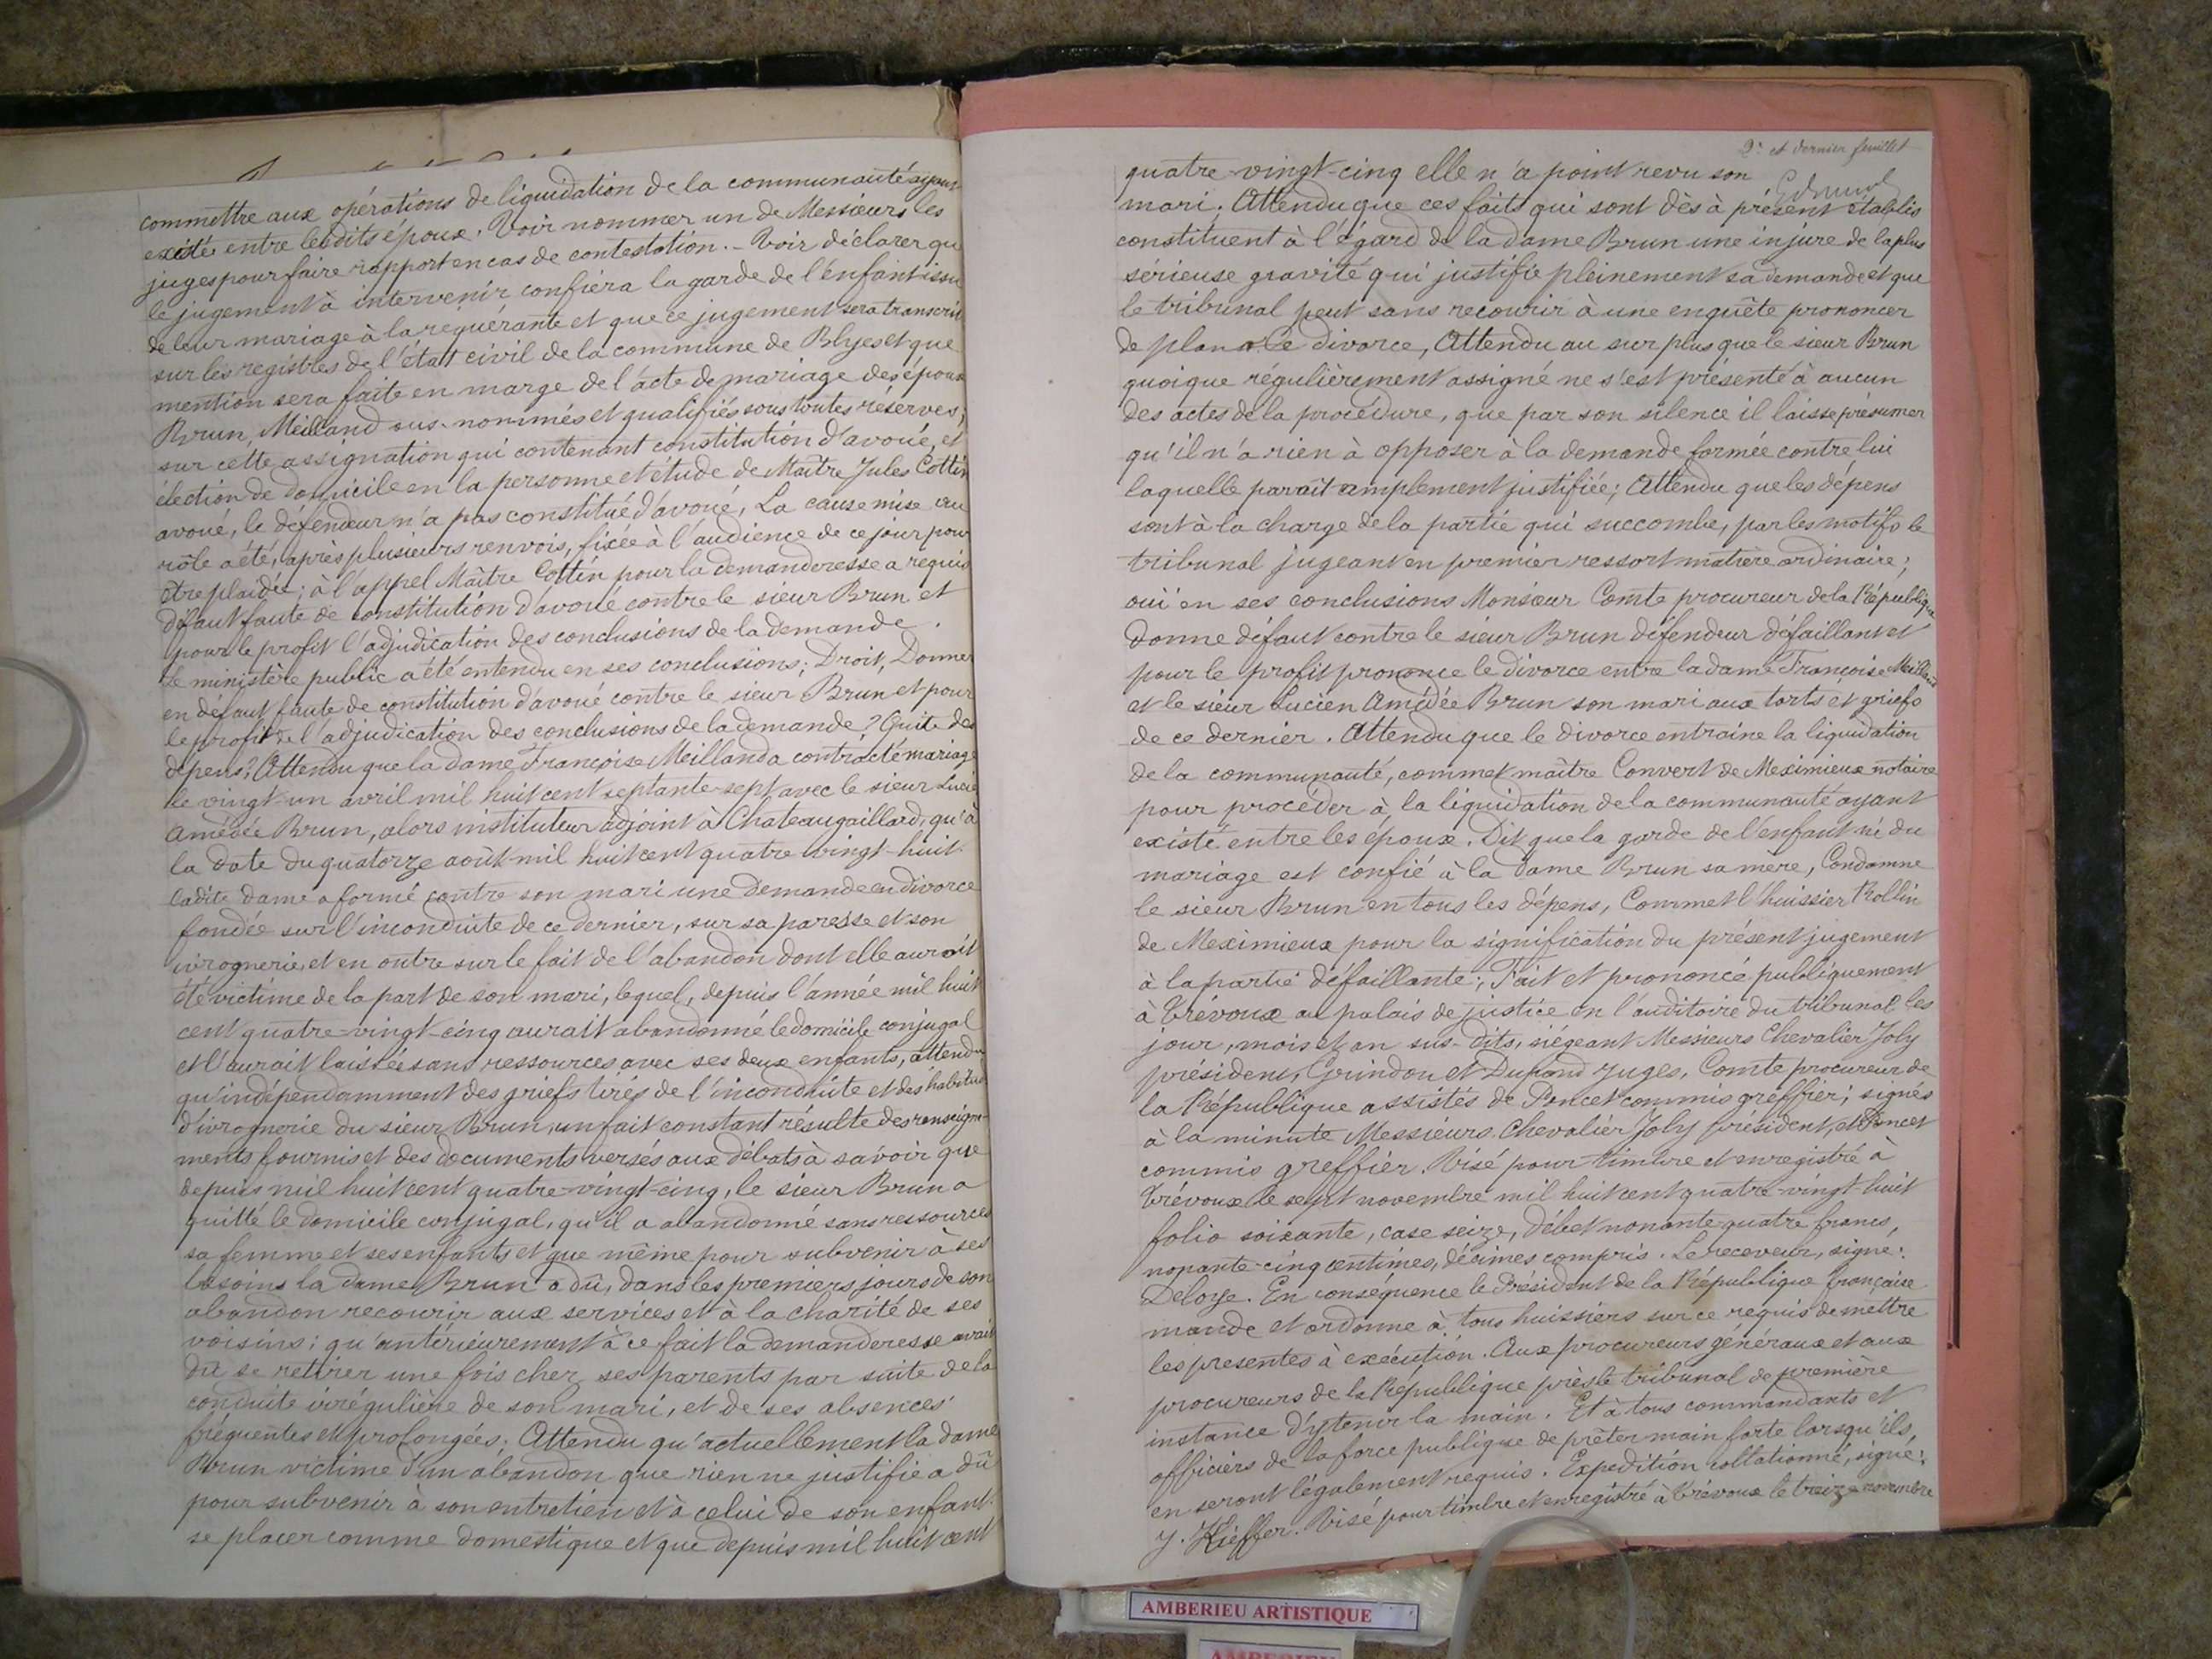 commettre aux opérations de liquidation de la communauté ayant
existé entre lesdits époux. Voir nommer un de Messieurs les
juges pour faire rapport en cas de contestation. - Voir déclarer que
le jugement à intervenir confiera la garde de l'enfant issu
de leur mariage à la requérante et que ce jugement sera transcrit
sur les registres de l'état civil de la commune de Blyes et que
mention sera faite en marge de l'acte de mariage des époux
Brun, Meilland sus-nommés et qualifiés sous toutes réserves;
sur cette assignation qui contenant constitution d'avoué, et
élection de domicile en la personne et étude de Maître Jules Cottin
avoué, le défendeur n'a pas constitué d'avoué, La cause mise au
rôle a été, après plusieurs renvois, fixée à l'audience de ce jour pour
être plaidée; à l'appel Maître Cottin pour la demanderesse a requis
défaut faute de constitution d'avoué contre le sieur Brun et
pour le profit l'adjudication des conclusions de la demande.
Le ministère public a été entendu en ses conclusions; Droit, Donner
en défaut faute de constitution d'avoué contre le sieur Brun et pour
le profit de l'adjudication des conclusions de la demande? Quite des
dépens? Attendu que la dame Françoise Meilland a contracté mariage
le vingt-un avril mil huit cent septante-sept avec le sieur Lucien
Amédée Brun, alors instituteur adjoint à Chateaugaillard, qu'à
la date du quatorze août mil huit cent quatre vingt-huit
ladite dame a formé contre son mari une demande en divorce
fondée sur l'inconduite de ce dernier, sur sa paresse et son
ivrognerie, et en outre sur le fait de l'abandon dont elle aurait
été victime de la part de son mari, lequel, depuis l'année mil huit
cent quatre-vingt-cinq aurait abandonné le domicile conjugal
et l'aurait laissée sans ressources avec ses deux enfants, attendu
qu'indépendamment des griefs tirés de l'inconduite et des habitudes
d'ivrognerie du sieur Brun, un fait constant résulte des renseigne-
ments fournis et des documents versés aux débats à savoir que
depuis mil huit cent quatre-vingt-cinq, le sieur Brun a
quitté le domicile conjugal, qu'il a abandonné sans ressources
sa femme et ses enfants et que même pour subvenir à ses
besoins la dame Brun a dû, dans les premiers jours de son
abandon recourir aux services et à la charité de ses
voisins; qu'antérieurement à ce fait la demanderesse avait
dû se retirer une fois chez ses parents par suite de la
conduite irrégulière de son mari, et de ses absences
fréquentes et prolongées; Attendu qu'actuellement la dame
Brun victime d'un abandon que rien ne justifie a dû
pour subvenir à son entretien et à celui de son enfant
se placer comme domestique et que depuis mil huit cent
2e et dernier feuillet
quatre-vingt-cinq elle n'a point revu son
mari. Attendu que ces faits qui sont dès à présent établis
constituent à l'égard de la dame Brun une injure de la plus
sérieuse gravité qui justifie pleinement sa demande et que
le tribunal peut sans recourir à une enquête prononcer
de plan le divorce, Attendu au surplus que le sieur Brun
quoique régulièrement assigné ne s'est présenté à aucun
des actes de la procédure, que par son silence il laisse présumer
qu'il n'a rien à opposer à la demande formée contre lui
laquelle parait amplement justifiée; Attendu que les dépens
sont à la charge de la partie qui succombe, par les motifs le
tribunal jugeant en premier ressort matière ordinaire;
ouï en ses conclusions Monsieur Comte procureur de la République
donne défaut contre le sieur Brun défendeur défaillant et
pour le profit prononce le divorce entre la dame Françoise Meilland
et le sieur Lucien Amédée Brun son mari aux torts et griefs
de ce dernier. Attendu que le divorce entraine la liquidation
de la communauté, commet maître Convert de Meximieux notaire
pour procéder à la liquidation de la communauté ayant
existé entre les époux. Dit que la garde de l'enfant né du
mariage est confié à la dame Brun sa mère, Condamne
le sieur Brun en tous les dépens, Commet l'huissier Rollin
de Meximieux pour la signification du présent jugement
à la partie défaillante; Fait et prononcé publiquement
à Trévoux au palais de justice en l'auditoire du tribunal les
jour, mois et an sus-dits, siégeant Messieurs Chevalier Joly
président, Grindon et Dupond juges, Comte procureur de
la République assistés de Poncet commis greffier; signés
à la minute Messieurs Chevalier Joly président, et Poncet
commis greffier. Visé pour timbre et enregistré à
Trévoux le sept novembre mil huit cent quatre-vingt-huit
folio soixante, case seize, débet nonante-quatre francs,
nonante-cinq centimes, décimes compris. Le receveur, signé:
Deloye. En conséquence le Président de la République française
mande et ordonne à tous huissiers sur ce requis de mettre
les présentes à exécution. Aux procureurs généraux et aux
procureurs de la République près le tribunal de première
instance d'y tenir la main. Et à tous commandants et
officiers de la force publique de prêter main forte lorsqu'ils
en seront légalement requis. Expédition collationné, signé:
J. Kieffer. Visé pour timbre et enregistré à Trévoux le treize novembre
AMBERIEU ARTISTIQUE